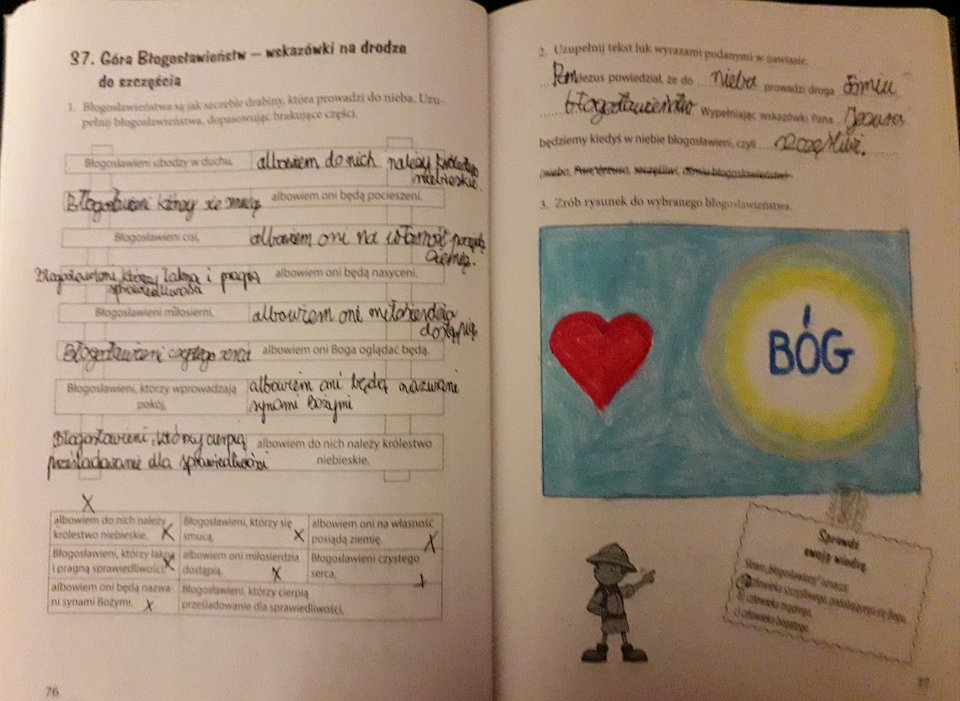 37. Góra Błogosławieństw – wskazówki na drodze
do szczęścia
1. Błogosławieństwa są jak szczeble drabiny, która prowadzi do nieba. Uzu-
pełnij błogosławieństwa, dopasowując brakujące części.
Błogosławieni ubodzy w duchu, albowiem do nich należy królestwo
niebieskie.
Błogosławieni którzy się smucą albowiem oni będą pocieszeni.
Błogosławieni cisi, albowiem oni na własność posiądą
ziemię.
Błogosławieni, którzy łakną i pragną albowiem oni będą nasyceni.
sprawiedliwości
Błogosławieni miłosierni, albowiem oni miłosierdzia
dostąpią
Błogosławieni czystego serca albowiem oni Boga oglądać będą.
Błogosławieni, którzy wprowadzają albowiem oni będą nazwani
pokój, synami Bożymi
Błogosławieni, którzy cierpią albowiem do nich należy królestwo
prześladowanie dla sprawiedliwości niebieskie.
X
albowiem do nich należy Błogosławieni, którzy się albowiem oni na własność
królestwo niebieskie. X smucą, X posiądą ziemię. X
Błogosławieni, którzy łakną albowiem oni miłosierdzia Błogosławieni czystego
i pragną sprawiedliwości, X dostąpią. X serca, X
albowiem oni będą nazwa- Błogosławieni, którzy cierpią
ni synami Bożymi. X prześladowanie dla sprawiedliwości,
76
2. Uzupełnij tekst luk wyrazami podanymi w nawiasie.
Pan Jezus powiedział, że do nieba prowadzi droga ośmiu
błogosławieństw Wypełniając wskazówki Pana Jezusa
będziemy kiedyś w niebie błogosławieni, czyli szczęśliwi.
(nieba, Pan Jezusa, szczęśliwi, ośmiu błogosławieństw)
3. Zrób rysunek do wybranego błogosławieństwa.
BÓG
Sprawdź
swoją wiedzę
Słowo „błogosławiony” oznacza:
a) człowieka szczęśliwego, podobającego się Bogu,
b) człowieka mądrego,
c) człowieka bogatego.